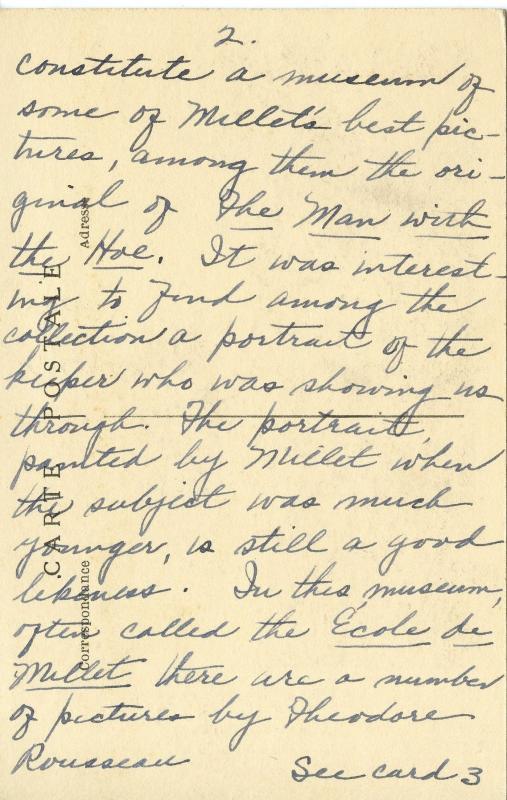 2.
constitute a museum of
some of Millet's best pic-
tures, among them the ori-
ginal of The Man with
the Hoe. It was interest-
ing to find among the
collection a portrait of the
keeper who was showing us
through. The portrait,
painted by Millet when
the subject was much
younger, is still a good
likeness. In this museum,
often called the École de
Millet there are a number
of pictures by Theodore
Rousseau
See card 3
CARTE POSTALE
Correspondance
Adresse